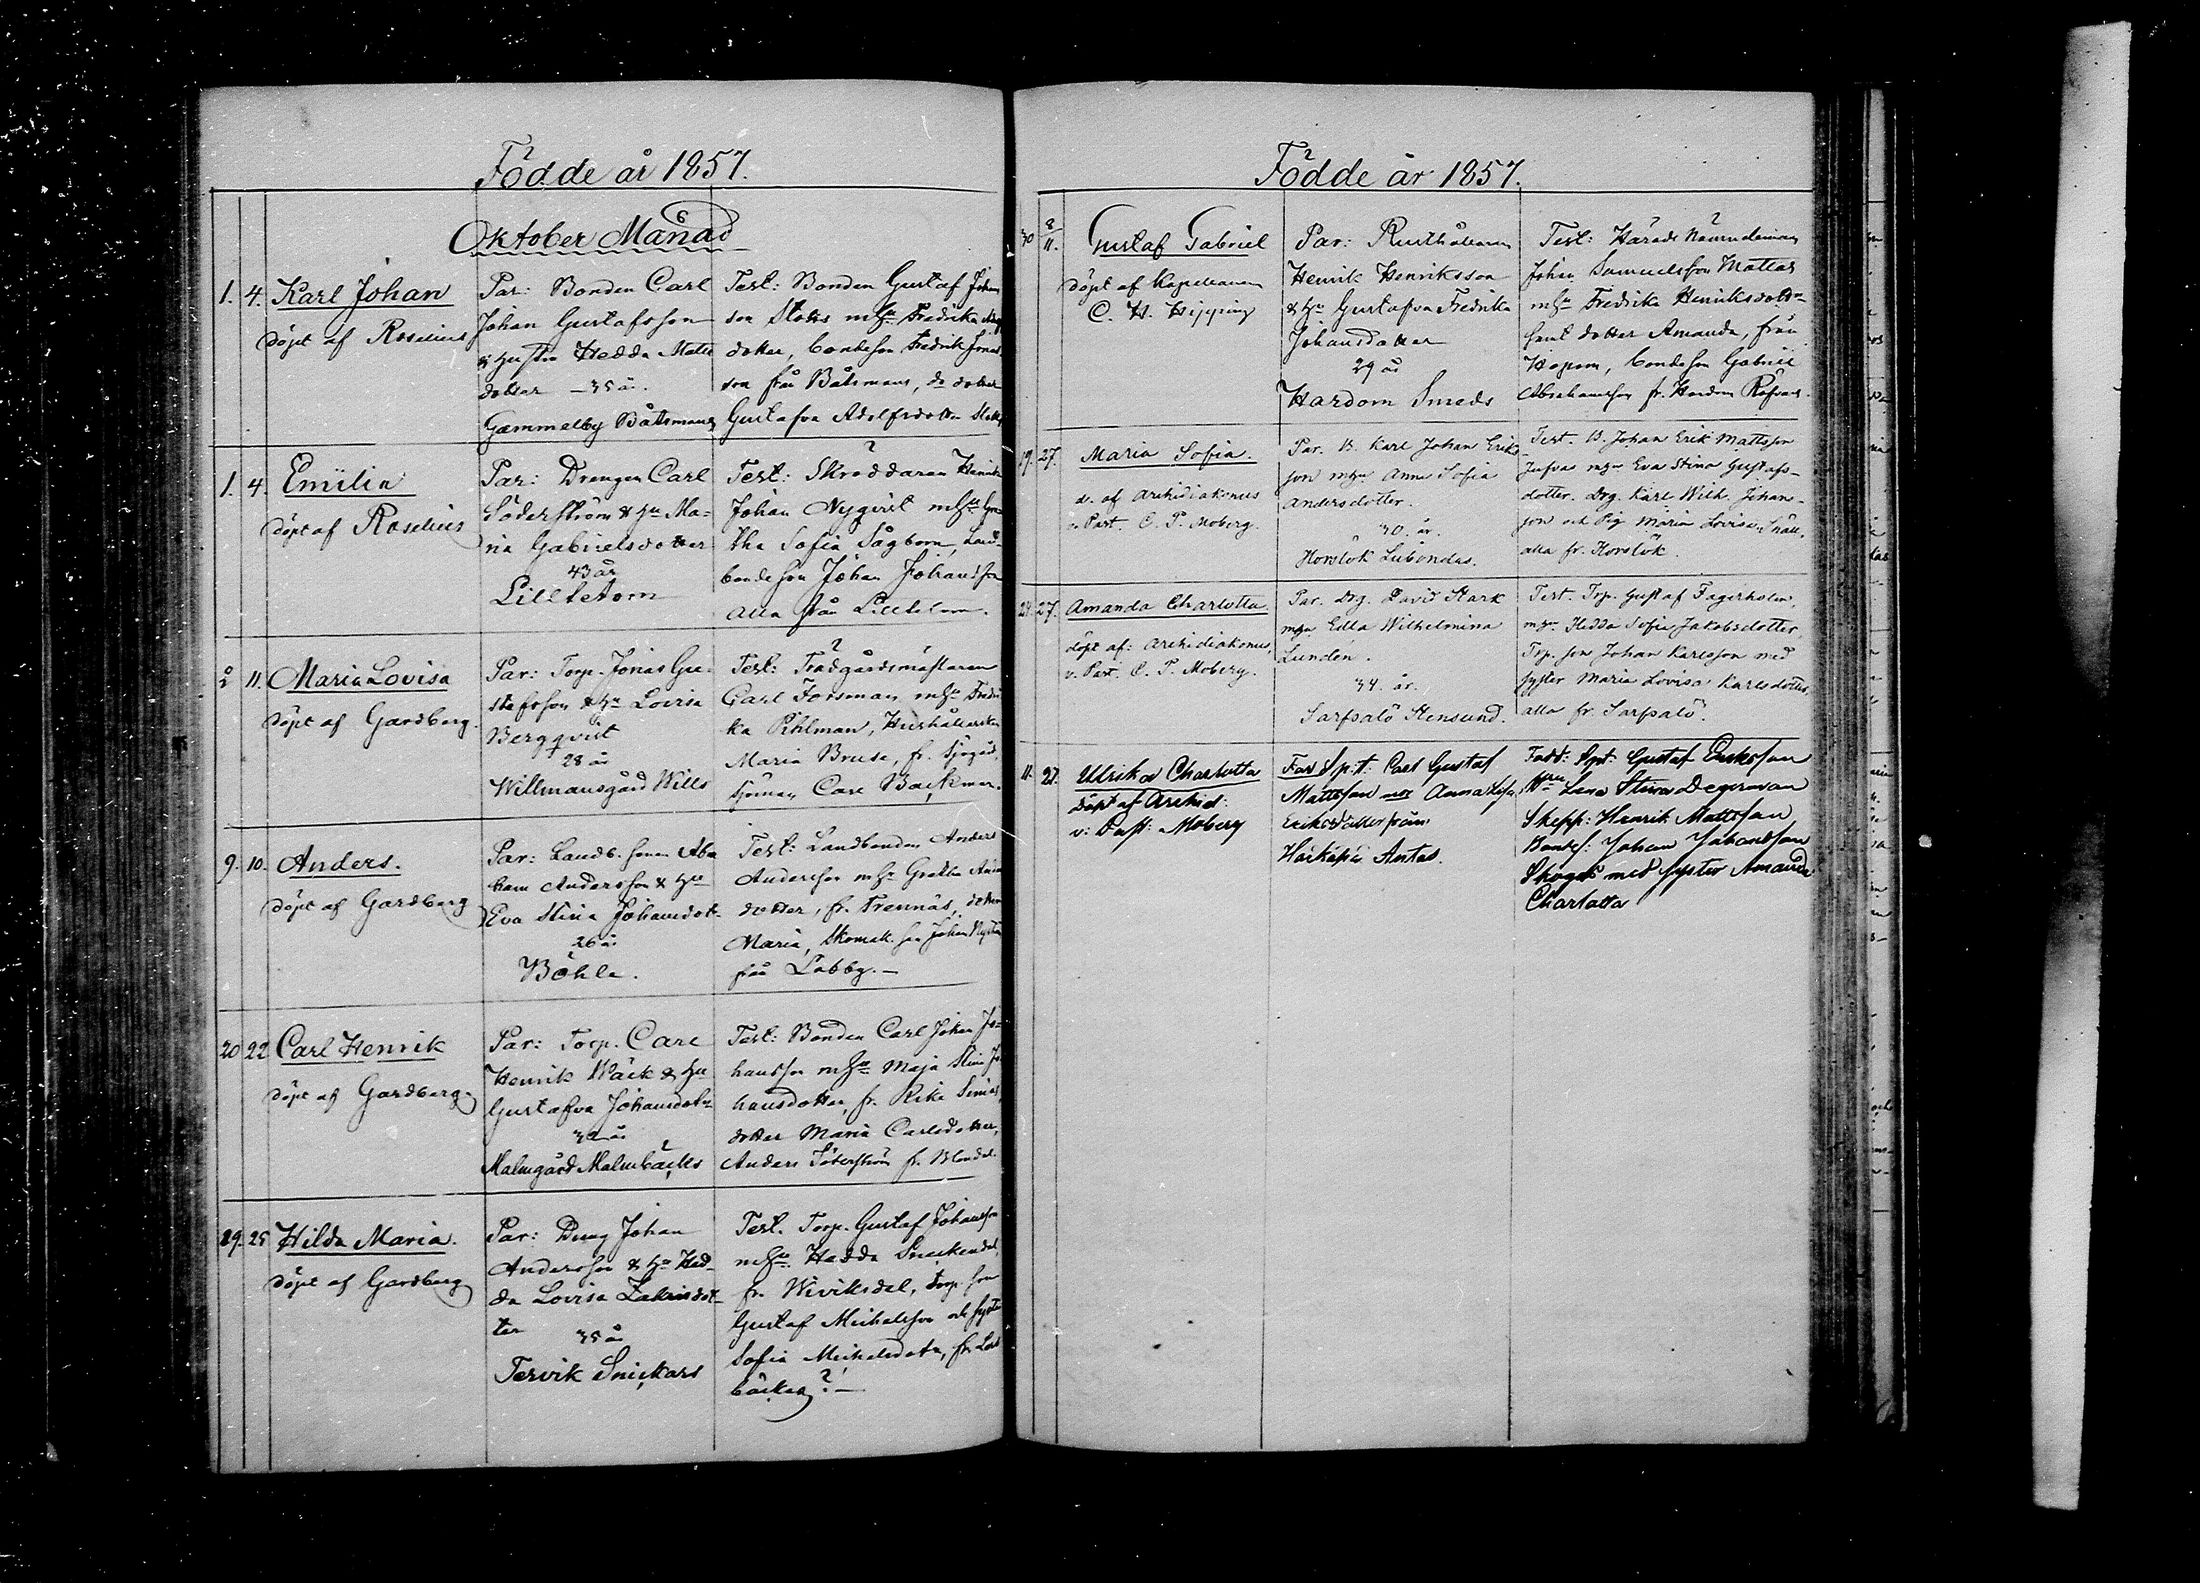 Födde år 1857.
Oktober Månad
1. 4. Karl Johan
döpt af Roselius
Par: Bonden Carl
Johan Gustafsson
& hustru Hedda Matts
dotter — 35 år.
Gammelby Båtsmans
Test: Bonden Gustaf Johans
son Stoks m hu Fredrika
dotter, bondeson Fredrik Jonas
son från Båtsmans, do dotter
Gustafva Adolfsdotter
1. 4. Emilia
döpt af Roselius
Par: Drengen Carl
Söderström & hu Ma-
ria Gabrielsdotter
43 år
Lilltetom
Test: Skräddaren Henrik
Johan Nyqvist m hu
tha Sofia Sågbom, Land-
bondeson Johan Johansson
alla från Lilltetom.
2 11. Maria Lovisa
döpt af Gardberg.
Par: Torp. Jonas Gu-
stafsson & hu Lovisa
Bergqvist
28 år
Willmansgård Wills
Test: Trädgårdsmästaren
Carl Forsman m hu Fredri
ka Pihlman, Hushållerskan
Maria Bruse, fr. Sjögård,
sjöman Carl Backman.
9. 10. Anders.
döpt af Gardberg
Par: Landb. sonen Abra
ham Andersson & hu
Eva Stina Johansdot-
26 år
Böhle.
Test: Landbonden Anders
Andersson m hu Gretha
dotter, fr. Frennäs, dotter
Maria, Skomak. son Johan
från Labby. —
20 22 Carl Henrik
döpt af Gardberg.
Par: Torp. Carl
Henrik Wäck & hu
Gustafva Johansdotr
32 år
Malmgård Malmbäcks
Test: Bonden Carl Johan Jo-
hansson m hu Maja Stina Jo
hansdotter, fr. Rike
dotter Maria Carlsdotter,
Anders Söderström fr.
19. 25 Hilda Maria.
döpt af Gardberg
Par: Dreng Johan
Andersson & hu Hed-
da Lovisa Zakrisdot-
ter 35 år
Tervik Snickars
Test. Torp. Gustaf Johansson
m hu Hedda
fr. Wiviksdal, Torp. son
Gustaf Michelsson och syster
Sofia Michelsdotr, fr.
backa? —
Födde år 1857.
30 8/11. Gustaf Gabriel
döpt af Kapellanen
C. H. Hipping
Par: Rusthållaren
Henrik Henriksson
& hu Gustafva Fredrika
Johansdotter
29 år
Hardom Smeds
Test: Härads Nämndeman
Johan Samuelsson Mattas
m hu Fredrika Henriksdotr
samt dotter Amanda, från
Hopom, bondeson Gabriel
Abrahamsson fr. Hardom Räfvars.
19. 27. Maria Sofia.
d. af Archidiakonus
v. Past. C. P. Moberg.
Par. B. Karl Johan Eriks-
son m hu Anna Sofia
Andersdotter.
30. år.
Horslök Lubondas.
Test. B. Johan Erik Mattsson
Jufvas m hu Eva Stina Gustafs-
dotter. Drg. Karl Wilh. Johans-
son och Pig. Maria Lovisa Snäll,
alla fr. Horslök.
24. 27. Amanda Charlotta
döpt af: Archidiakonus,
v. Past. C. P. Moberg.
Par. Drg. David Stark
m hu Edla Wilhelmina
Lunden.
34. år.
Sarfsalö Stensund.
Test. Trp. Gustaf Fagerholm,
m hu Hedda Sofia Jakobsdotter,
Trp. son Johan Karlsson med
syster Maria Lovisa Karlsdotter,
alla fr. Sarfsalö.
11. 27. Ulrika Charlotta
döpt af Archid:
v: Past: Moberg
Far Spt: Carl Gustaf
Mattsson mor Anna Lisa
Eriksdotter från
Härkäpää Antas.
Fadd: Spt: Gustaf Eriksson
Hru Lena Stina Degerman
Skepp: Henrik Mattsson
Bondes: Johan Johansson
Skogs med syster Amanda
Charlotta